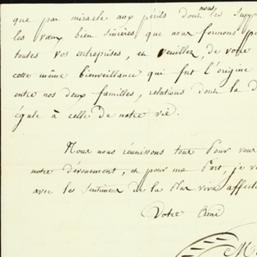 que par miracle aux périls dont les supp
les vœux bien sincères que nous formons po
toutes vos entreprises, et veuillez, de votre
cette même bienveillance qui fut l'origine
entre nos deux familles, relations dont la d
égale à celle de notre vie.
Nous nous réunissons tous pour vous
notre dévouement, et pour ma Part, je v
avec les sentiments de la plus vive affecti
Votre ami
M